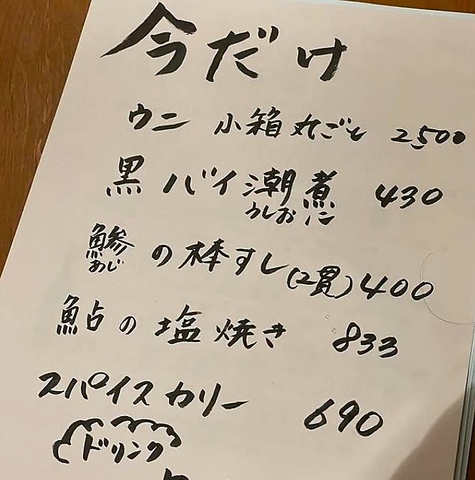 今だけ
ウニ 小箱丸ごと 2500
黒バイ潮煮 430
うしおに
鯵の棒すし(2貫)400
あじ
鮎の塩焼き 833
スパイスカリー 690
ドリンク